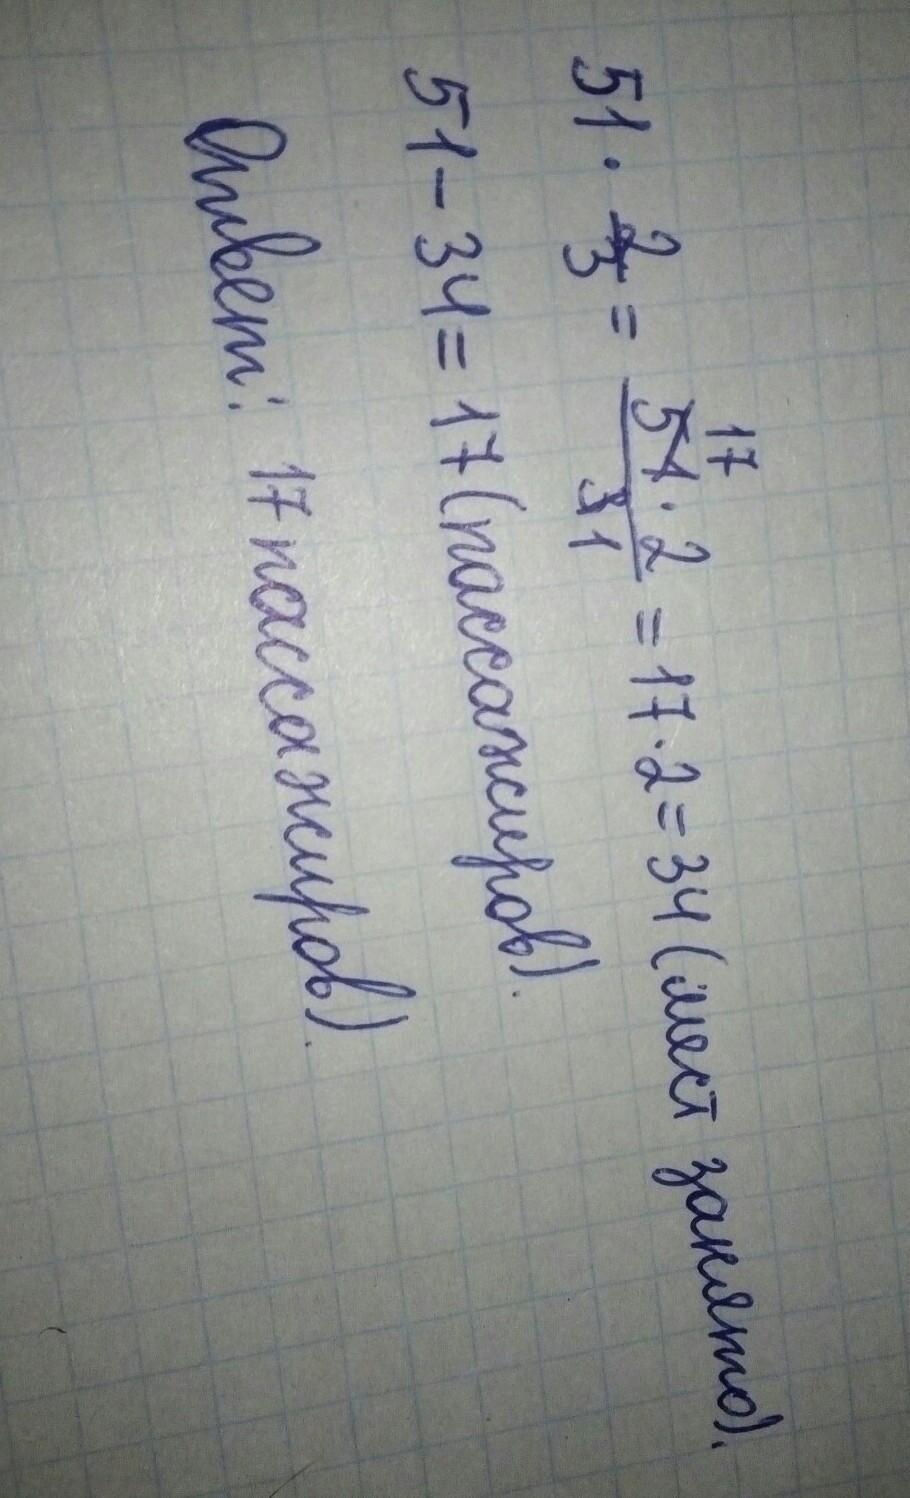 51 · 2/3 = 51 · 2/3 17 1 = 17 · 2 = 34 (мест занято).
51 - 34 = 17 (пассажиров).
Ответ: 17 пассажиров).